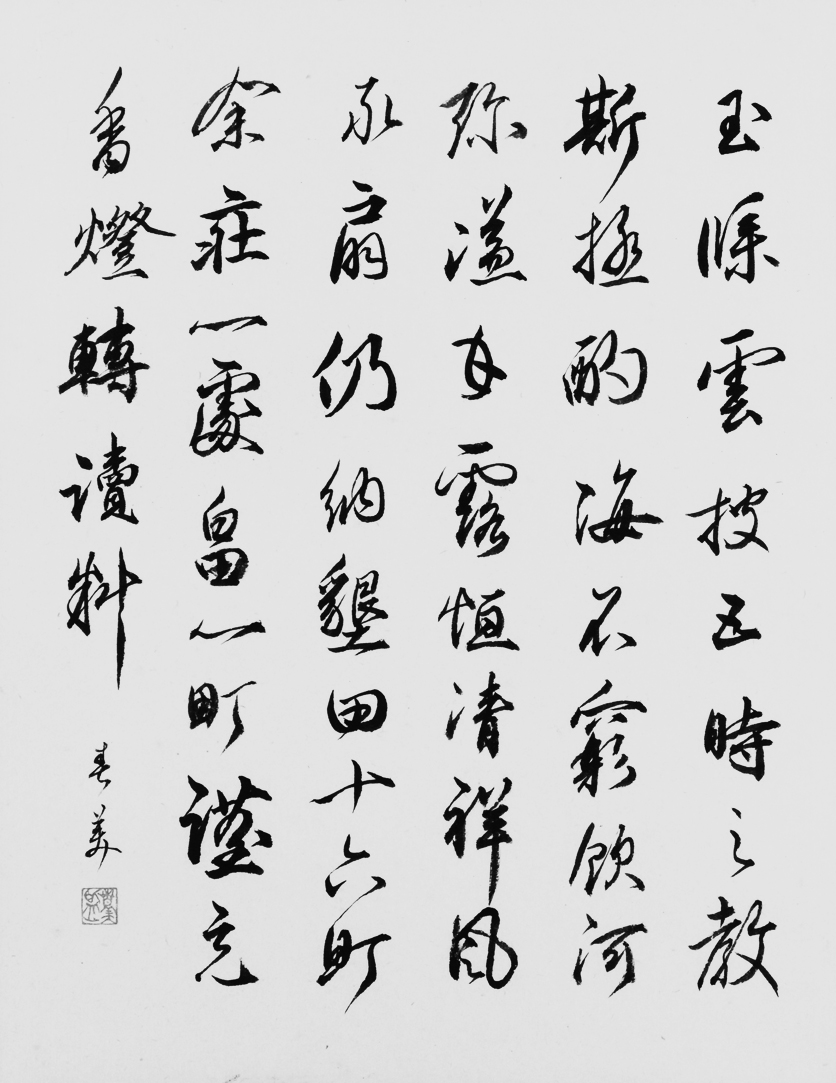 玉牒雲披五時之教
斯極酌海不窮飲河
弥溢甘露恒清祥風
永扇仍納墾田十六町
余莊一處畠一町謹充
香燈轉讀料
春美